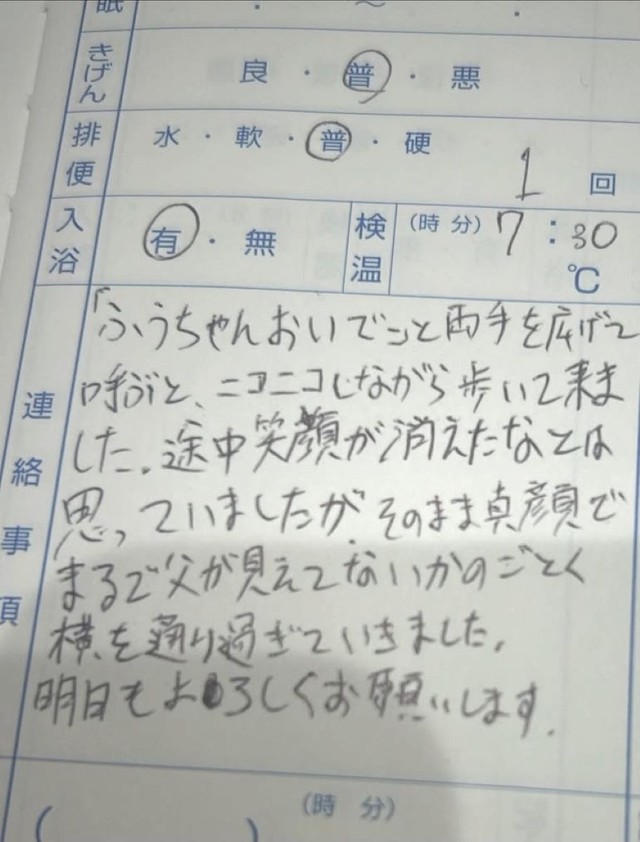 眠 ・ 〜 ・
きげん 良 ・ 普 ・ 悪
排便 水 ・ 軟 ・ 普 ・ 硬 1 回
入浴 有 ・ 無 検温 (時 分) 7:30 ℃
連絡事項
「ふうちゃんおいでー」と両手を広げて
呼ぶと、ニコニコしながら歩いて来ま
した。途中笑顔が消えたなとは
思っていましたが、そのまま真顔で
まるで父が見えてないかのごとく
横を通り過ぎていきました。
明日もよろしくお願いします。
(時 分)
( )